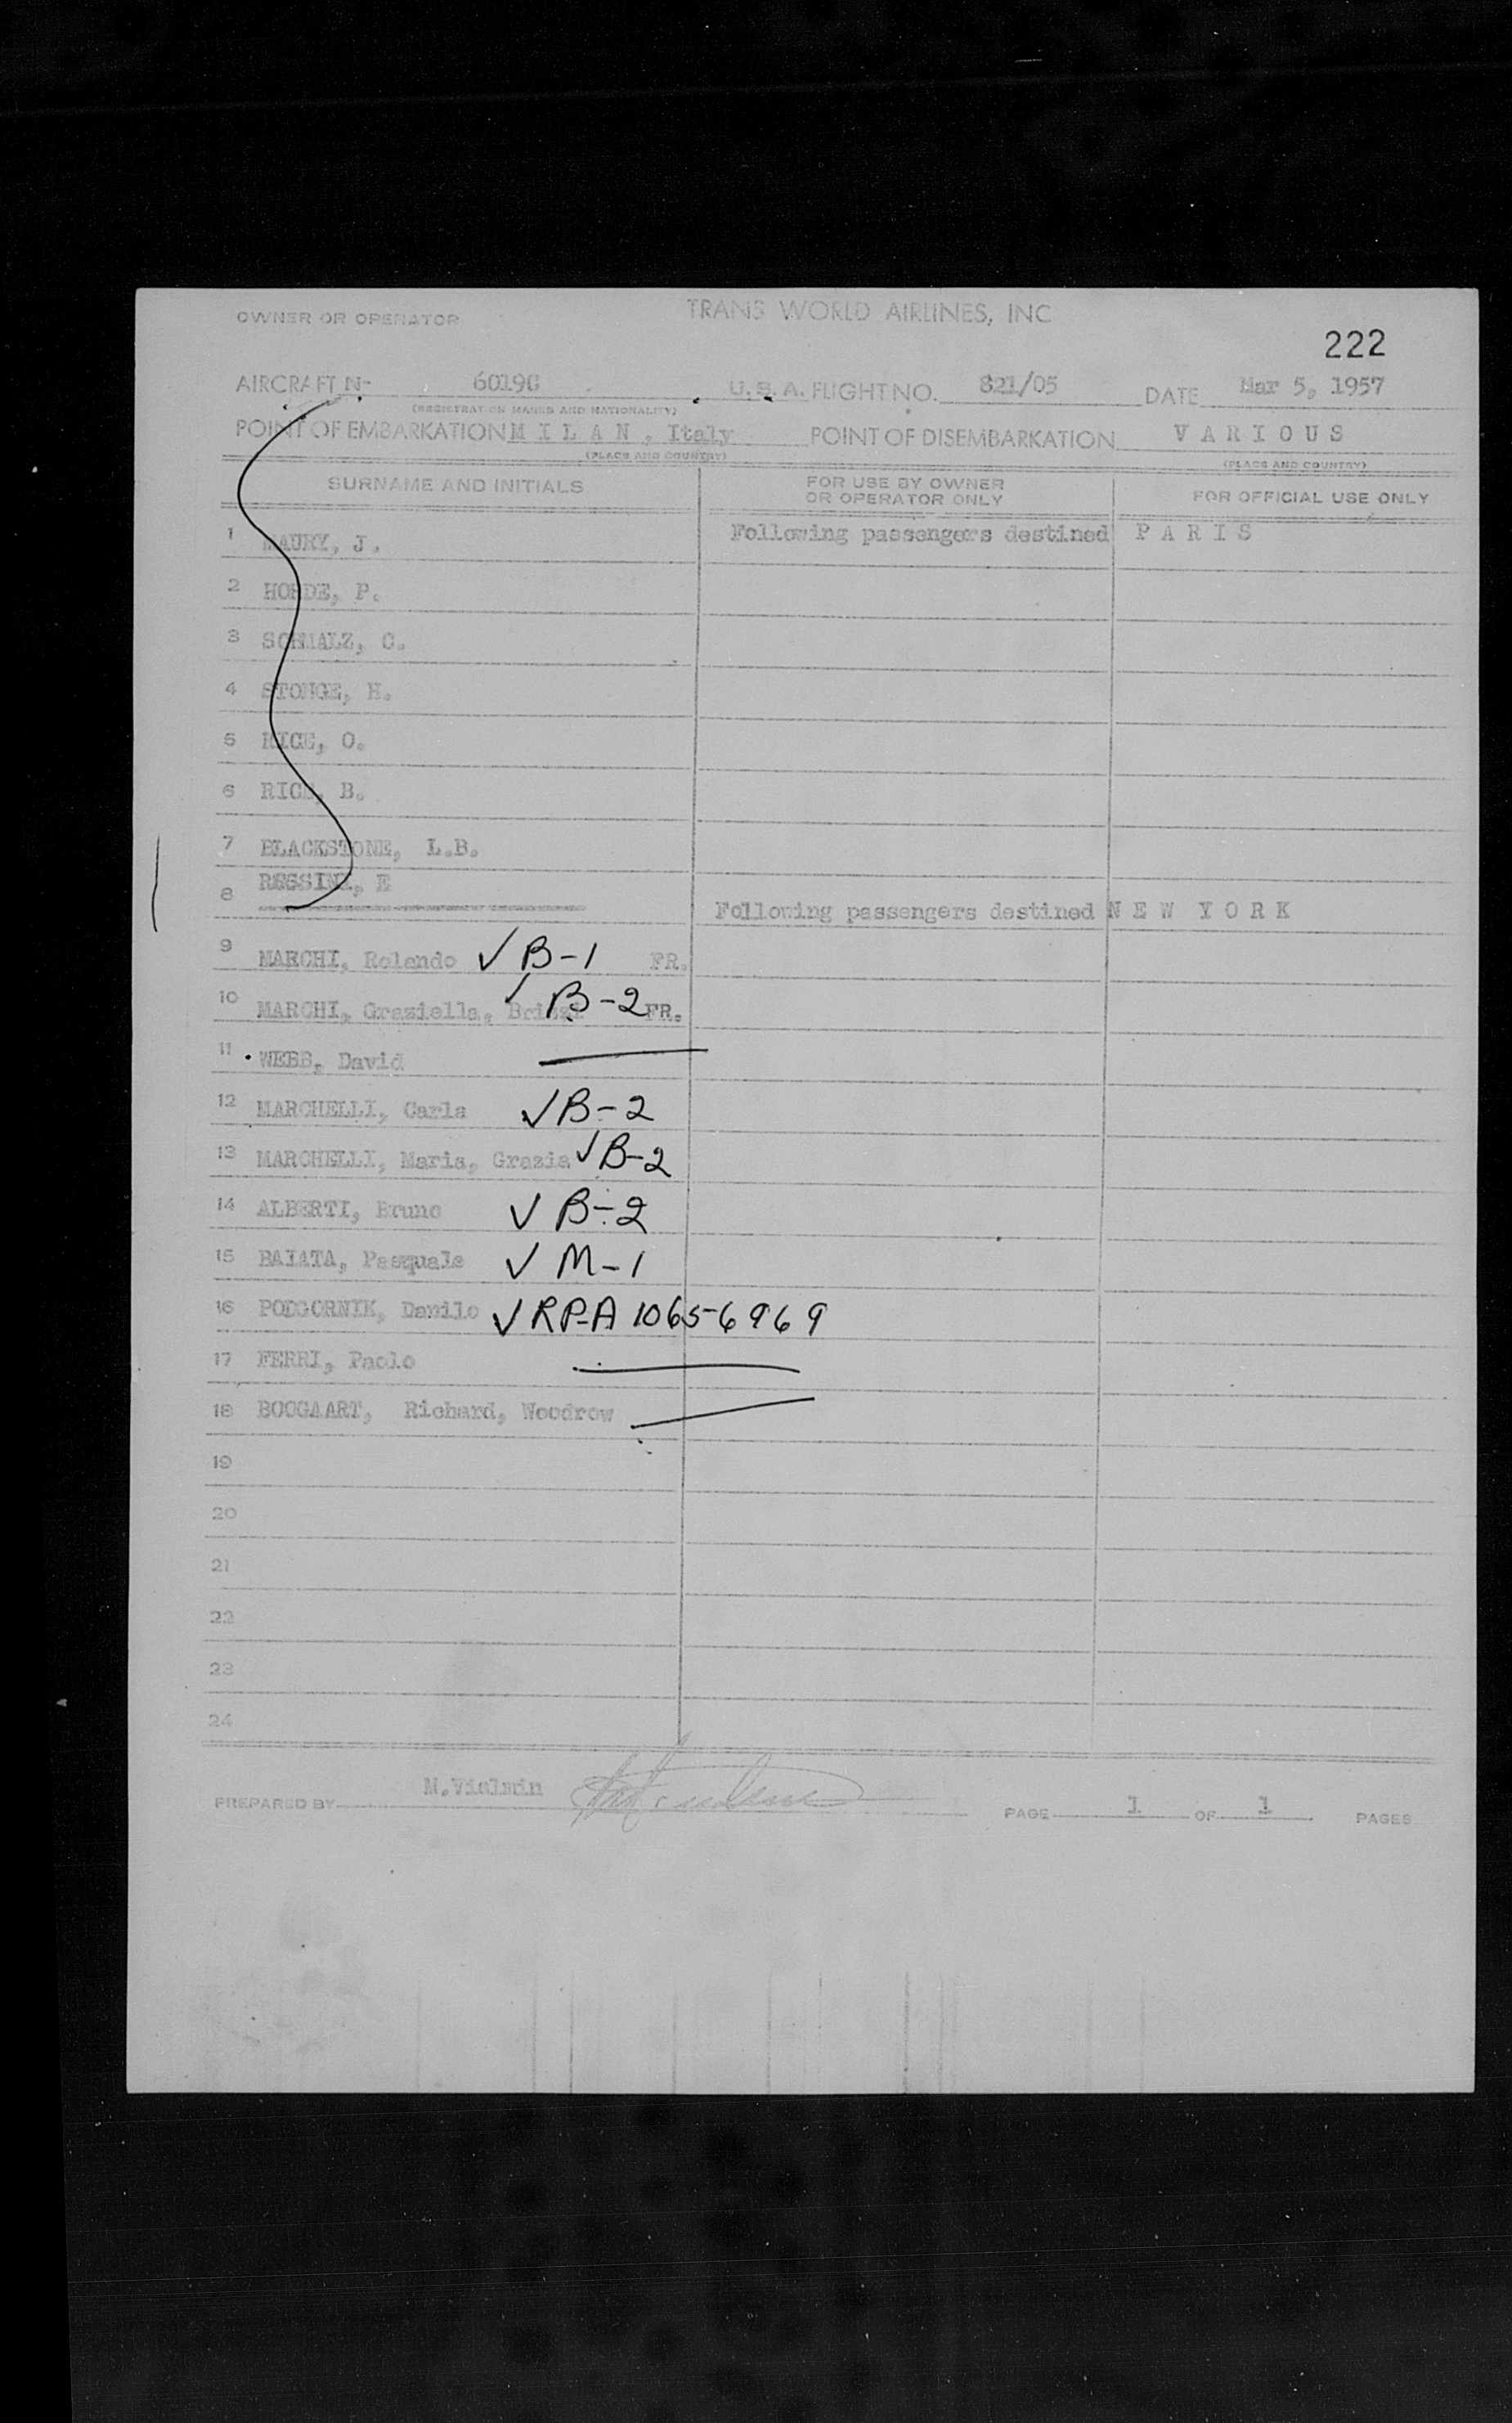 OWNER OR OPERATOR TRANS WORLD AIRLINES, INC
222
AIRCRAFT N- 6019C U.S.A. FLIGHT NO. 821/05 DATE Mar 5, 1957
(REGISTRATION MARKS AND NATIONALITY)
POINT OF EMBARKATION M I L A N , Italy POINT OF DISEMBARKATION V A R I O U S
(PLACE AND COUNTRY) (PLACE AND COUNTRY)
SURNAME AND INITIALS FOR USE BY OWNER OR OPERATOR ONLY FOR OFFICIAL USE ONLY
1 MAURY, J. Following passengers destined P A R I S
2 HORDE, P.
3 SCHMALZ, C.
4 STONGE, H.
5 RICE, O.
6 RICE, B.
7 BLACKSTONE, L.B.
8 RESSINE, E
Following passengers destined N E W Y O R K
9 MARCHI, Rolando ✓ B-1 FR.
10 MARCHI, Graziella, ✓ B-2 FR.
11 WEBB, David
12 MARCHELLI, Carla ✓ B-2
13 MARCHELLI, Maria, Grazia ✓ B-2
14 ALBERTI, Bruno ✓ B-2
15 BAIATA, Pasquale ✓ M-1
16 PODGORNIK, Danilo ✓ RP-A 10656969
17 FERRI, Paolo
18 BOOGAART, Richard, Woodrow
19
20
21
22
23
24
PREPARED BY M. PAGE 1 OF 1 PAGES